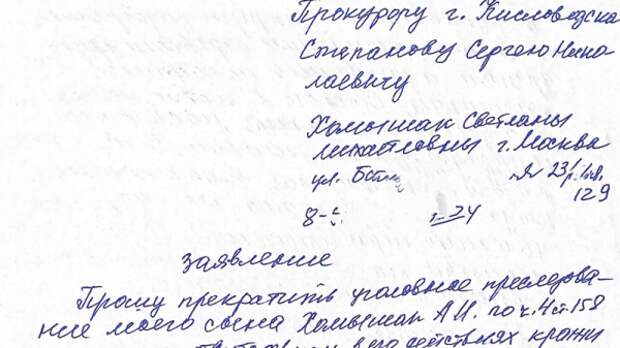 Прокурору г. Кисловодска
Степанову Сергею Нико
лаевичу
Хомышак Светланы
г. Москва
ул. 23
129
8-
24
Заявление
Прошу прекратить уголовное преследова-
ние моего сына Хомышак А.И. по ч.4 ст.158
в его действиях кражи